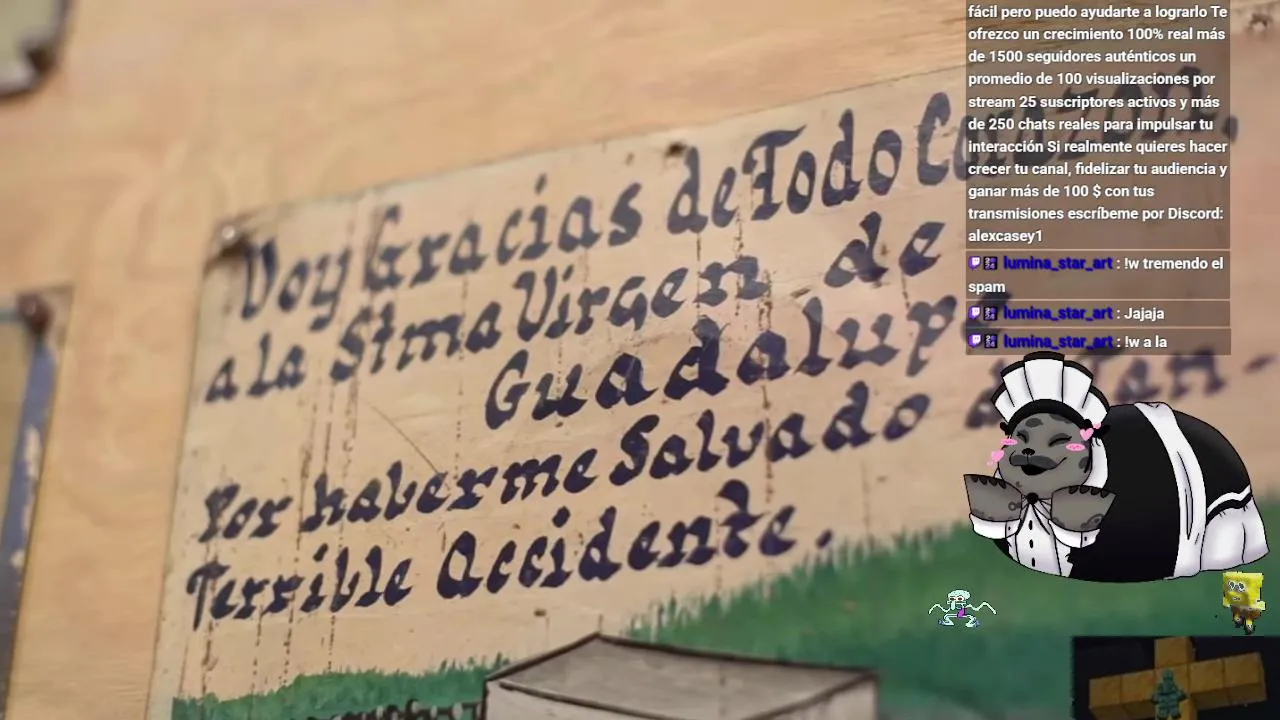 Doy Gracias de Todo Corazon,
a la Stma Virgen de
Guadalupe
Por haberme Salvado de Tan-
Terrible Accidente.
fácil pero puedo ayudarte a lograrlo Te
ofrezco un crecimiento 100% real más
de 1500 seguidores auténticos un
promedio de 100 visualizaciones por
stream 25 suscriptores activos y más
de 250 chats reales para impulsar tu
interacción Si realmente quieres hacer
crecer tu canal, fidelizar tu audiencia y
ganar más de 100 $ con tus
transmisiones escríbeme por Discord:
alexcasey1
lumina_star_art : !w tremendo el
spam
lumina_star_art : Jajaja
lumina_star_art : !w a la